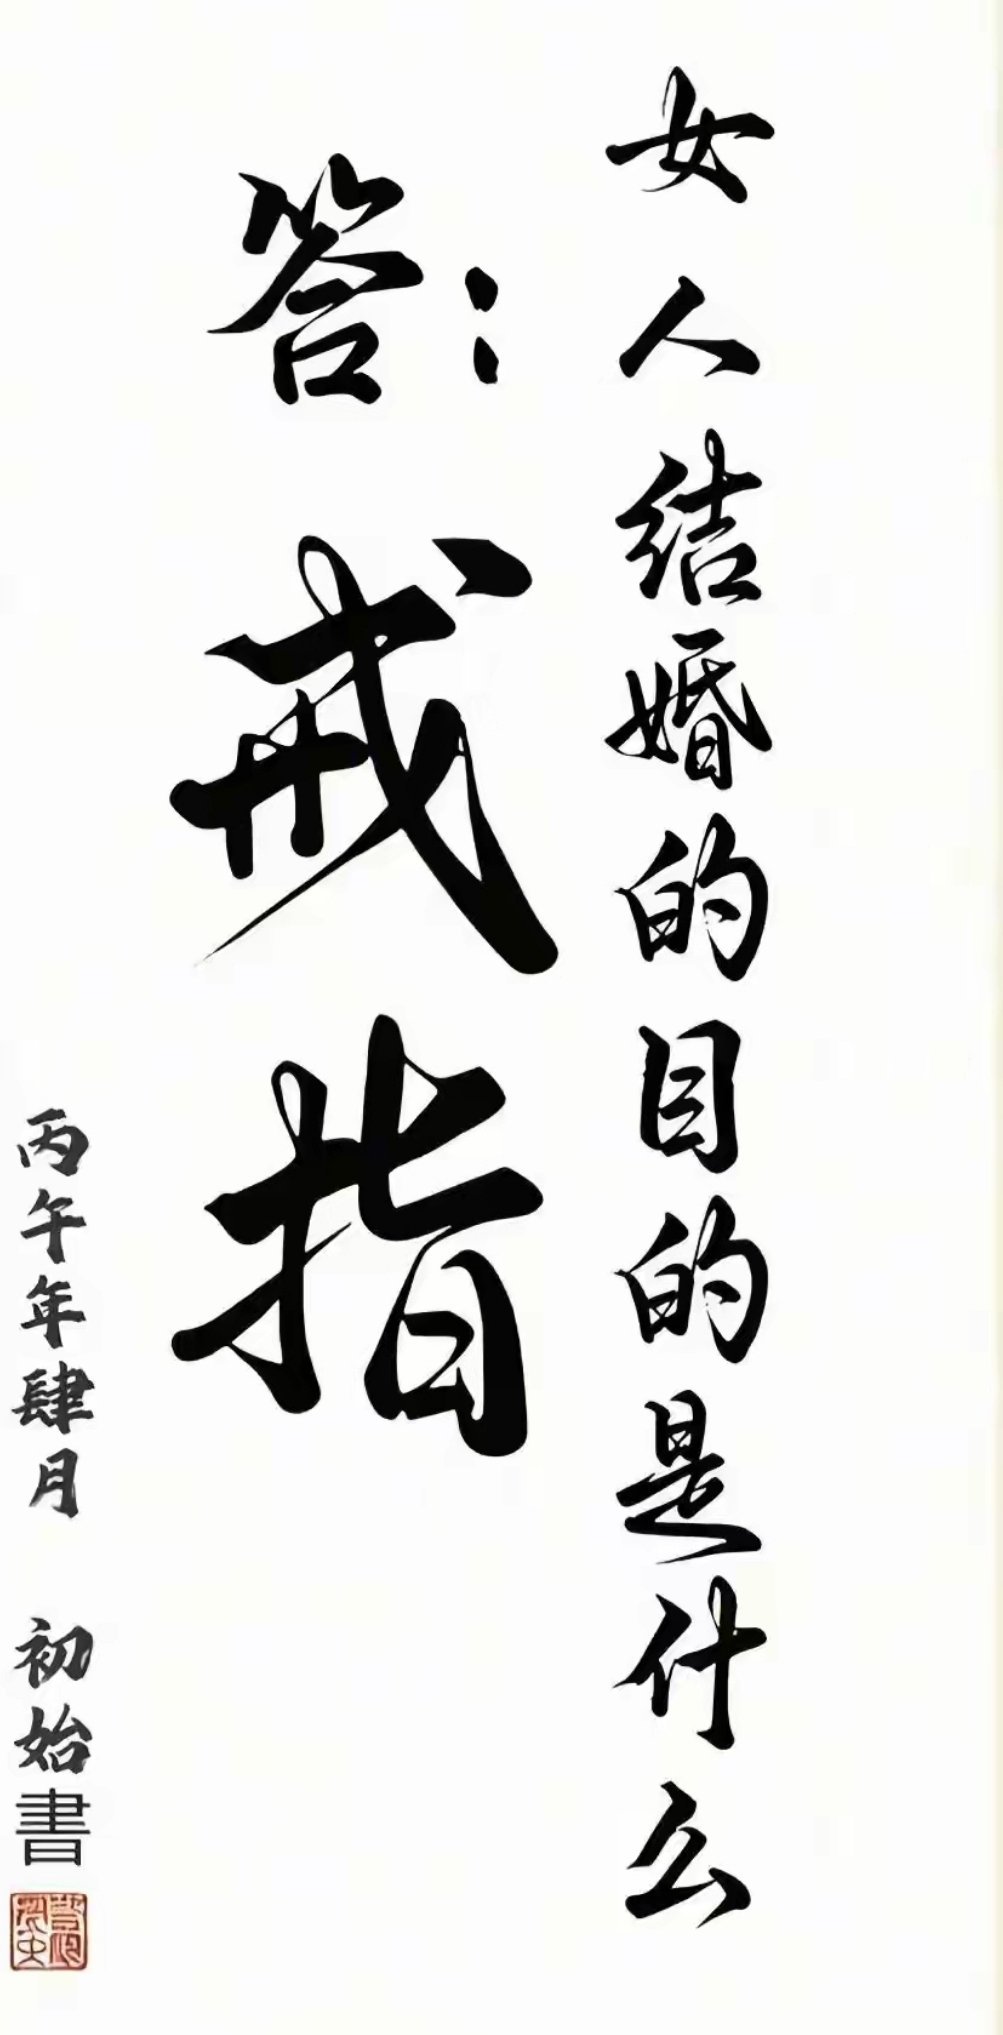 女人结婚的目的是什么
答：
戒指
丙午年肆月 初始書